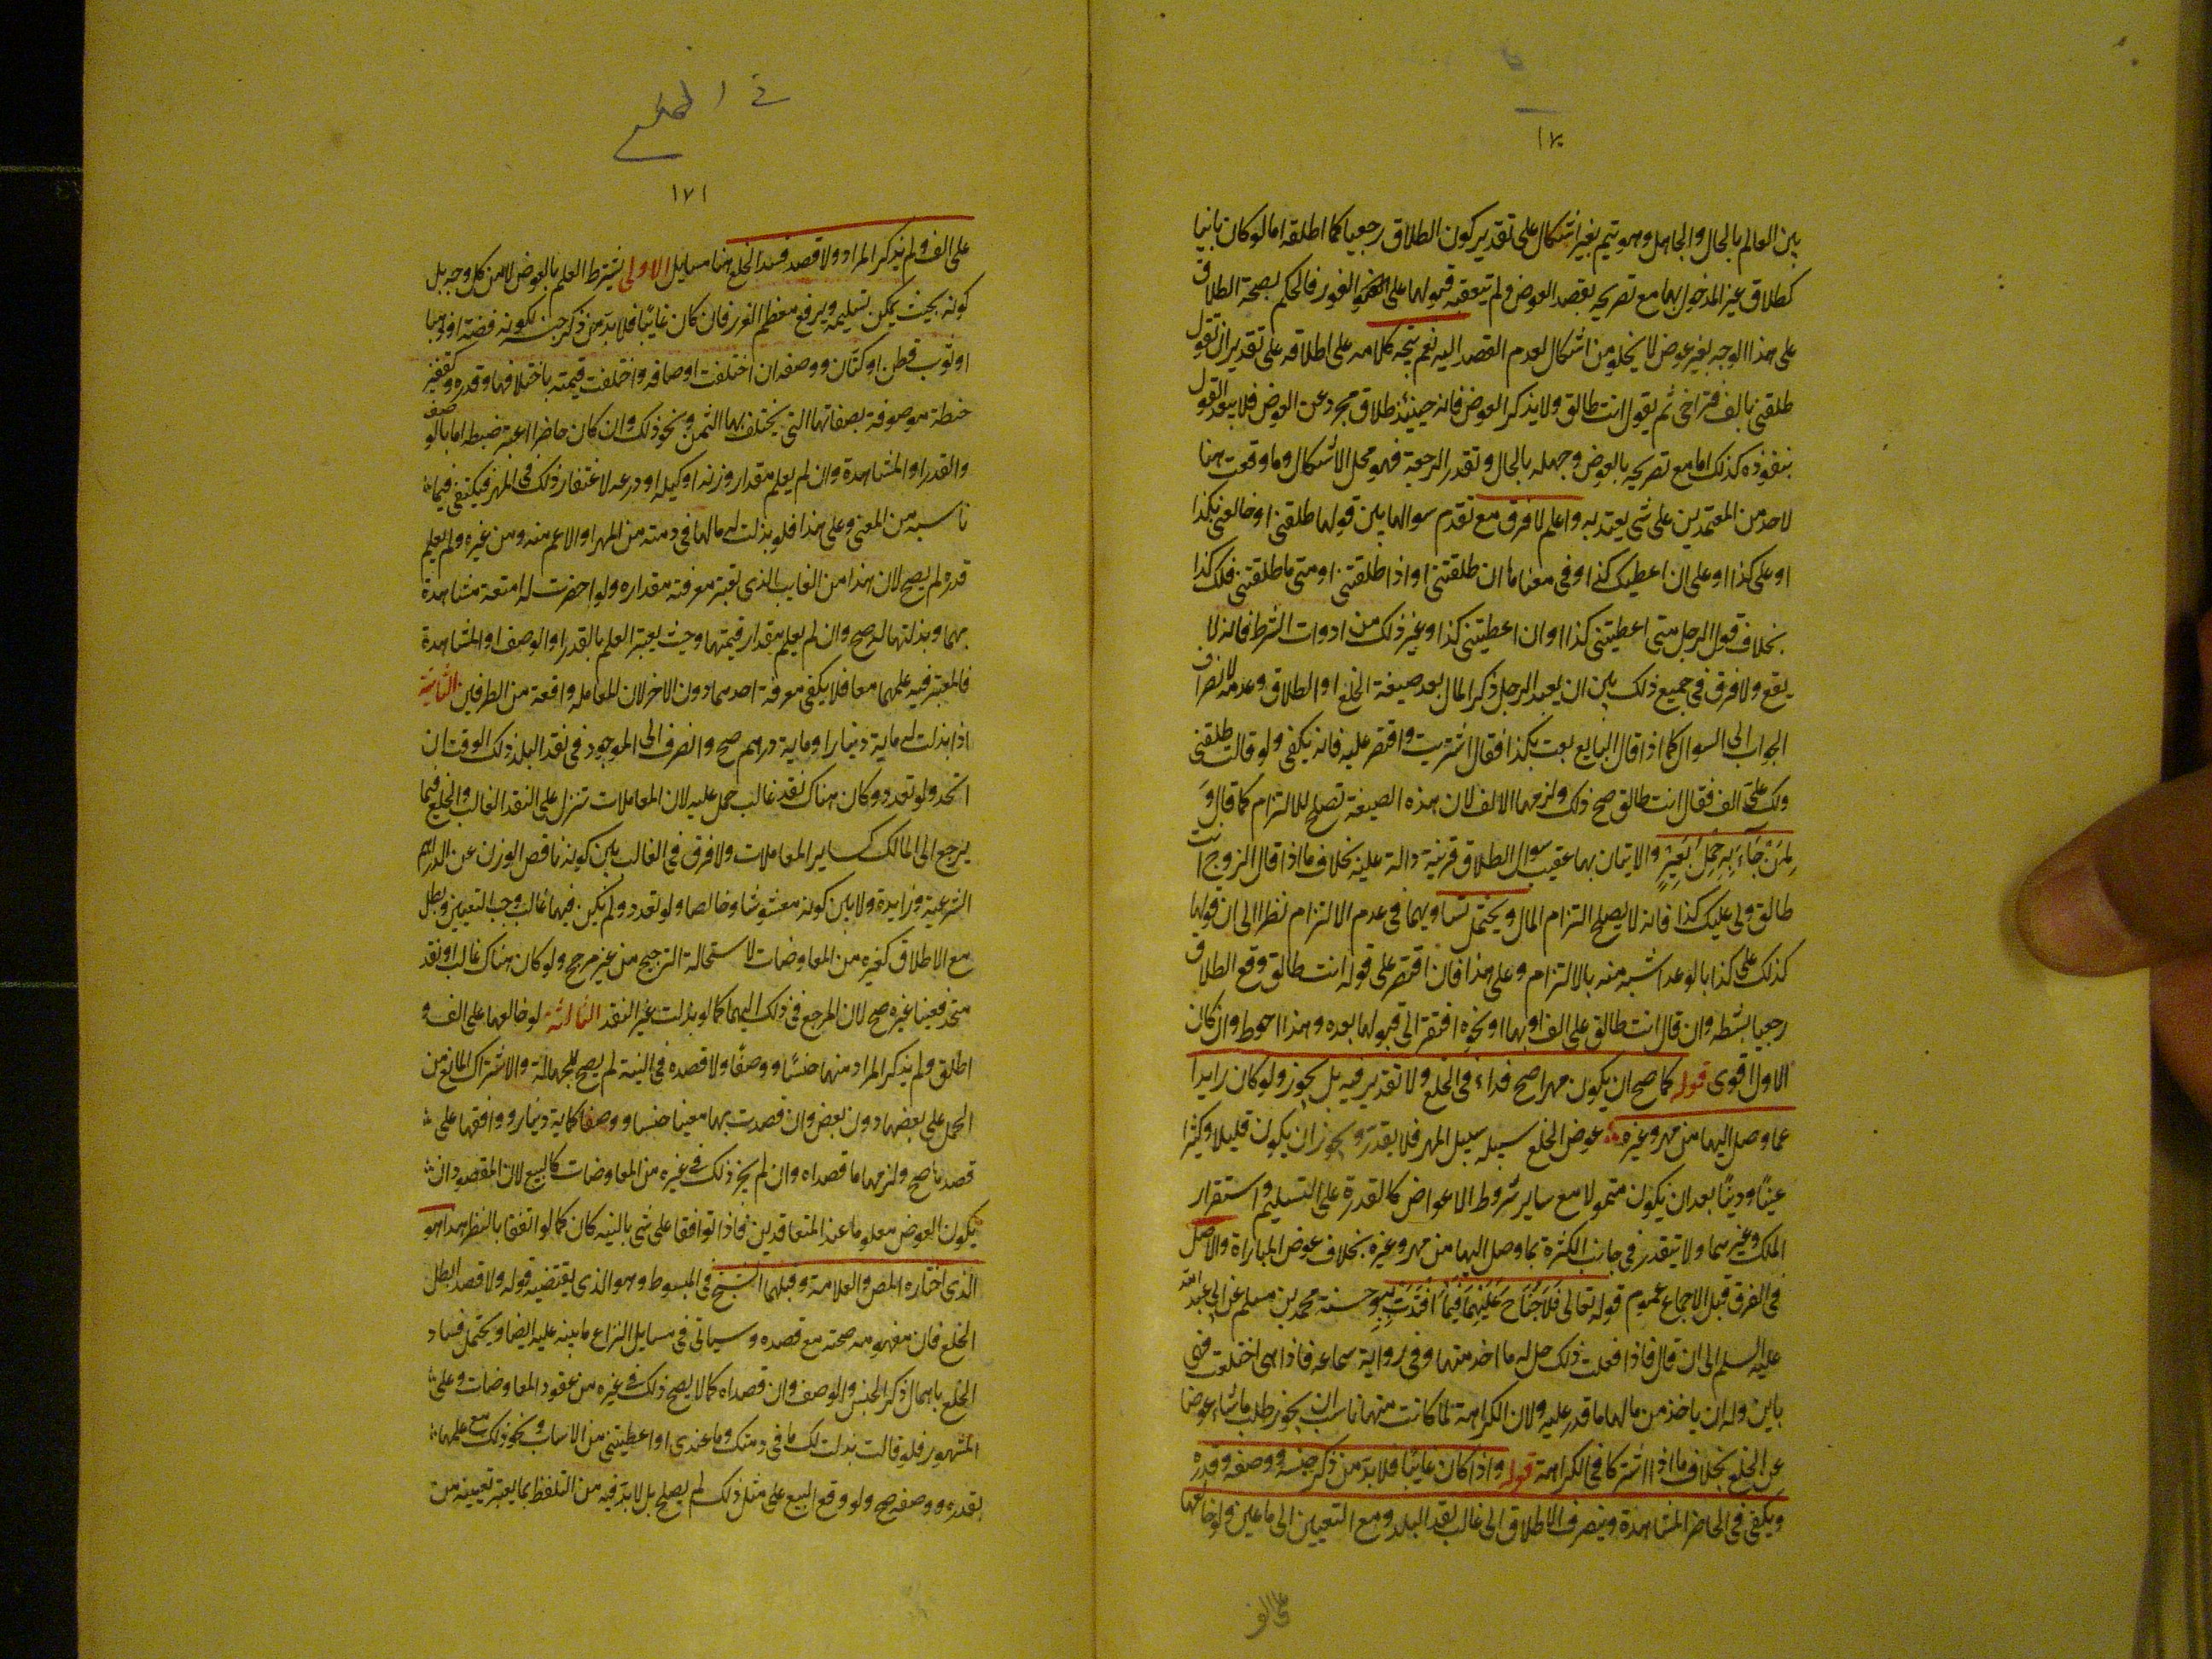 ١٧٠
بين العالم بالحال والجاهل وهو يتم بغير اشكال على تقدير كون الطلاق رجعيا كما اطلقه اما لو كان بائنا
كطلاق غير المدخول بها مع تصريحه بقصد العوض ولم يتعقبه قبولها على الفور فالحكم بصحة الطلاق
على هذا الوجه بغير عوض لا يخلو من اشكال لعدم القصد اليه نعم يتجه كلامه على اطلاقه على تقدير ان تقول
طلقني بالف فتراخى ثم يقول انت طالق ولا يذكر العوض فانه حينئذ طلاق مجرد عن العوض فلا يبعد القول
بنفوذه كذلك اما مع تصريحه بالعوض وجهله بالحال وتقدر الرجعة فهو محل الاشكال وما وقعت هنا
لاحد من المعتمدين على شي يعتد به واعلم لا فرق مع تقدم سوالها بين قولها طلقني او خالعني بكذا
او على كذا او على ان اعطيك كذا وفي معناها ان طلقتني او اذا طلقتني او متى ما طلقتني فلك كذا
بخلاف قول الرجل متى اعطيتني كذا او ان اعطيتني كذا وغير ذلك من ادوات الشرط فانه لا
يقع ولا فرق في جميع ذلك بين ان يعيد الرجل ذكر المال بعد صيغة الخلع او الطلاق وعدمه لانصراف
الجواب الى السوال كما اذا قال البايع بعت بكذا فقال اشتريت واقتصر عليه فانه يكفى ولو قالت طلقني
ولك على الف فقال انت طالق صح ذلك ولزمها الالف لان هذه الصيغة تصلح للالتزام كما قال وَ
لِمَنْ جَآءَ بِهِ حِمْلُ بَعِيرٍ والاتيان بها عقيب سوال الطلاق قرينة دالة عليه بخلاف ما اذا قال الزوج انت
طالق ولي عليك كذا فانه لا يصلح التزام المال ويحتمل تساويهما في عدم الالتزام نظرا الى ان قولها
كذلك على كذا بالوعد اشبه منه بالالتزام وعلى هذا فان اقتصر على قوله انت طالق وقع الطلاق
رجعيا بشطه وان قال انت طالق على الف او بها او نحوه افتقر الى قبولها بعده وهذا احوط وان كان
الاول اقوى قوله كما صح ان يكون مهرا صح فداء في الخلع ولا تقدير فيه بل يجوز ولو كان زايدا
عما وصل اليها من مهر وغيره عوض الخلع سبيله سبيل المهر فلا يقدر ويجوز ان يكون قليلا وكثيرا
عينًا ودينًا بعد ان يكون متمولا مع ساير شروط الاعواض كالقدرة على التسليم واستقرار
الملك وغيرهما ولا يتقدر في جانب الكثرة بما وصل اليها من مهر وغيره بخلاف عوض المباراة والاصل
في الفرق قبل الاجماع عموم قوله تعالى فَلَا جُنَاحَ عَلَيْهِمَا فِيمَا افْتَدَتْ بِهِ وحسنة محمد بن مسلم عن ابى عبد الله
عليه السلم الى ان قال فاذا فعلت ذلك حل له ما اخذ منها وفي رواية سماعه فاذا هي اختلعت فهي
باين وله ان ياخذ من مالها ما قدر عليه ولان الكراهة لما كانت منها ناسب ان يجوز طلب ما شاء عوضا
عن الخلع بخلاف ما اذا اشتركا في الكراهة قوله واذا كان غائبا فلا بد من ذكر جنسه ووصفه وقدره
ويكفى في الحاضر المشاهدة وينصرف الاطلاق الى غالب نقد البلد ومع التعيين الى ما عين ولو خالعها
على الف
في الخلع
١٧١
على الف ولم يذكر المراد ولا قصد فسد الخلع هنا مسايل الاولى يشترط العلم بالعوض لا من كل وجه بل
كونه بحيث يمكن تسليمه ويرفع معظم الغرر فان كان غايبا فلا بد من ذكر جنسه لكونه فضة او ذهبا
او ثوب قطن او كتان ووصفه ان اختلفت اوصافه واختلفت قيمته باختلافها وقدره كقفيز
حنطة موصوفة بصفاتها التي يختلف بها الثمن ونحو ذلك وان كان حاضرا اعتبر ضبطه اما بالوصف
والقدر او المشاهدة وان لم يعلم مقدار وزنه او كيله او ذرعه لاغتفار ذلك في المهر فيكتفى فيما
ناسبه من المعنى وعلى هذا فلو بذلت له مالها في ذمته من المهر او الاعم منه ومن غيره ولم يعلم
قدره لم يصح لان هذا من الغايب الذي يعتبر معرفة مقداره ولو احضرت له امتعة مشاهدة
مهما وبذلتها له صح وان لم يعلم مقدار قيمتها وحيث يعتبر العلم بالقدر او الوصف او المشاهدة
فالمعتبر فيه علمهما معا فلا يكفى معرفة احدهما دون الاخر لان المعامله واقعة من الطرفين الثانية
اذا بذلت له ماية دينار او ماية درهم صح وانصرف الى الموجود في نقد البلد ذلك الوقت ان
اتحد ولو تعدد وكان هناك نقد غالب حمل عليه لان المعاملات تنزل على النقد الغالب والخلع فيما
يرجع الى المالك كساير المعاملات ولا فرق في الغالب بين كونه ناقص الوزن عن الدراهم
الشرعية وزايده ولا بين كونه مغشوشا وخالصا ولو تعدد ولم يكن فيها غالب وجب التعيين وبطل
مع الاطلاق كغيره من المعاوضات لاستحالة الترجيح من غير مرجح ولو كان هناك غالب او نقد
متحد فعينا غيره صح لان المرجع في ذلك اليهما كما لو بذلت غير النقد الثالثة لو خالعها على الف و
اطلق ولم يذكر المراد منها جنسًا ووصفًا ولا قصده في النية لم يصح للجهالة والاشتراك المانع من
الحمل على بعضها دون بعض وان قصدت بها معينا جنسا ووصفا كماية دينار ووافقها على
قصدها صح ولزمها ما قصداه وان لم يجز ذلك في غيره من المعاوضات كالبيع لان المقصود ان
يكون العوض معلوما عند المتعاقدين فاذا توافقا على شي بالنيه كان كما لو اتفقا بالنظر هذا هو
الذي اختاره المص والعلامة وقبلهما الشيخ في المبسوط وهو الذي يقتضيه قوله ولا قصد ابطل
الخلع فان مفهومه صحته مع قصده وسياتي في مسايل النزاع ما ينبه عليه ايضا ويحتمل فساد
الخلع باهمال ذكر الجنس والوصف وان قصداه كما لا يصح ذلك في غيره من عقود المعاوضات وعلى
المشهور فلو قالت بذلت لك ما في ذمتك وما عندي او اعطيتني من الاسباب ونحو ذلك مع علمهما
بقدره ووصفه صح ولو وقع البيع على مثل ذلك لم يصلح بل لا بد فيه من التلفظ بما يعتبر تعيينه من